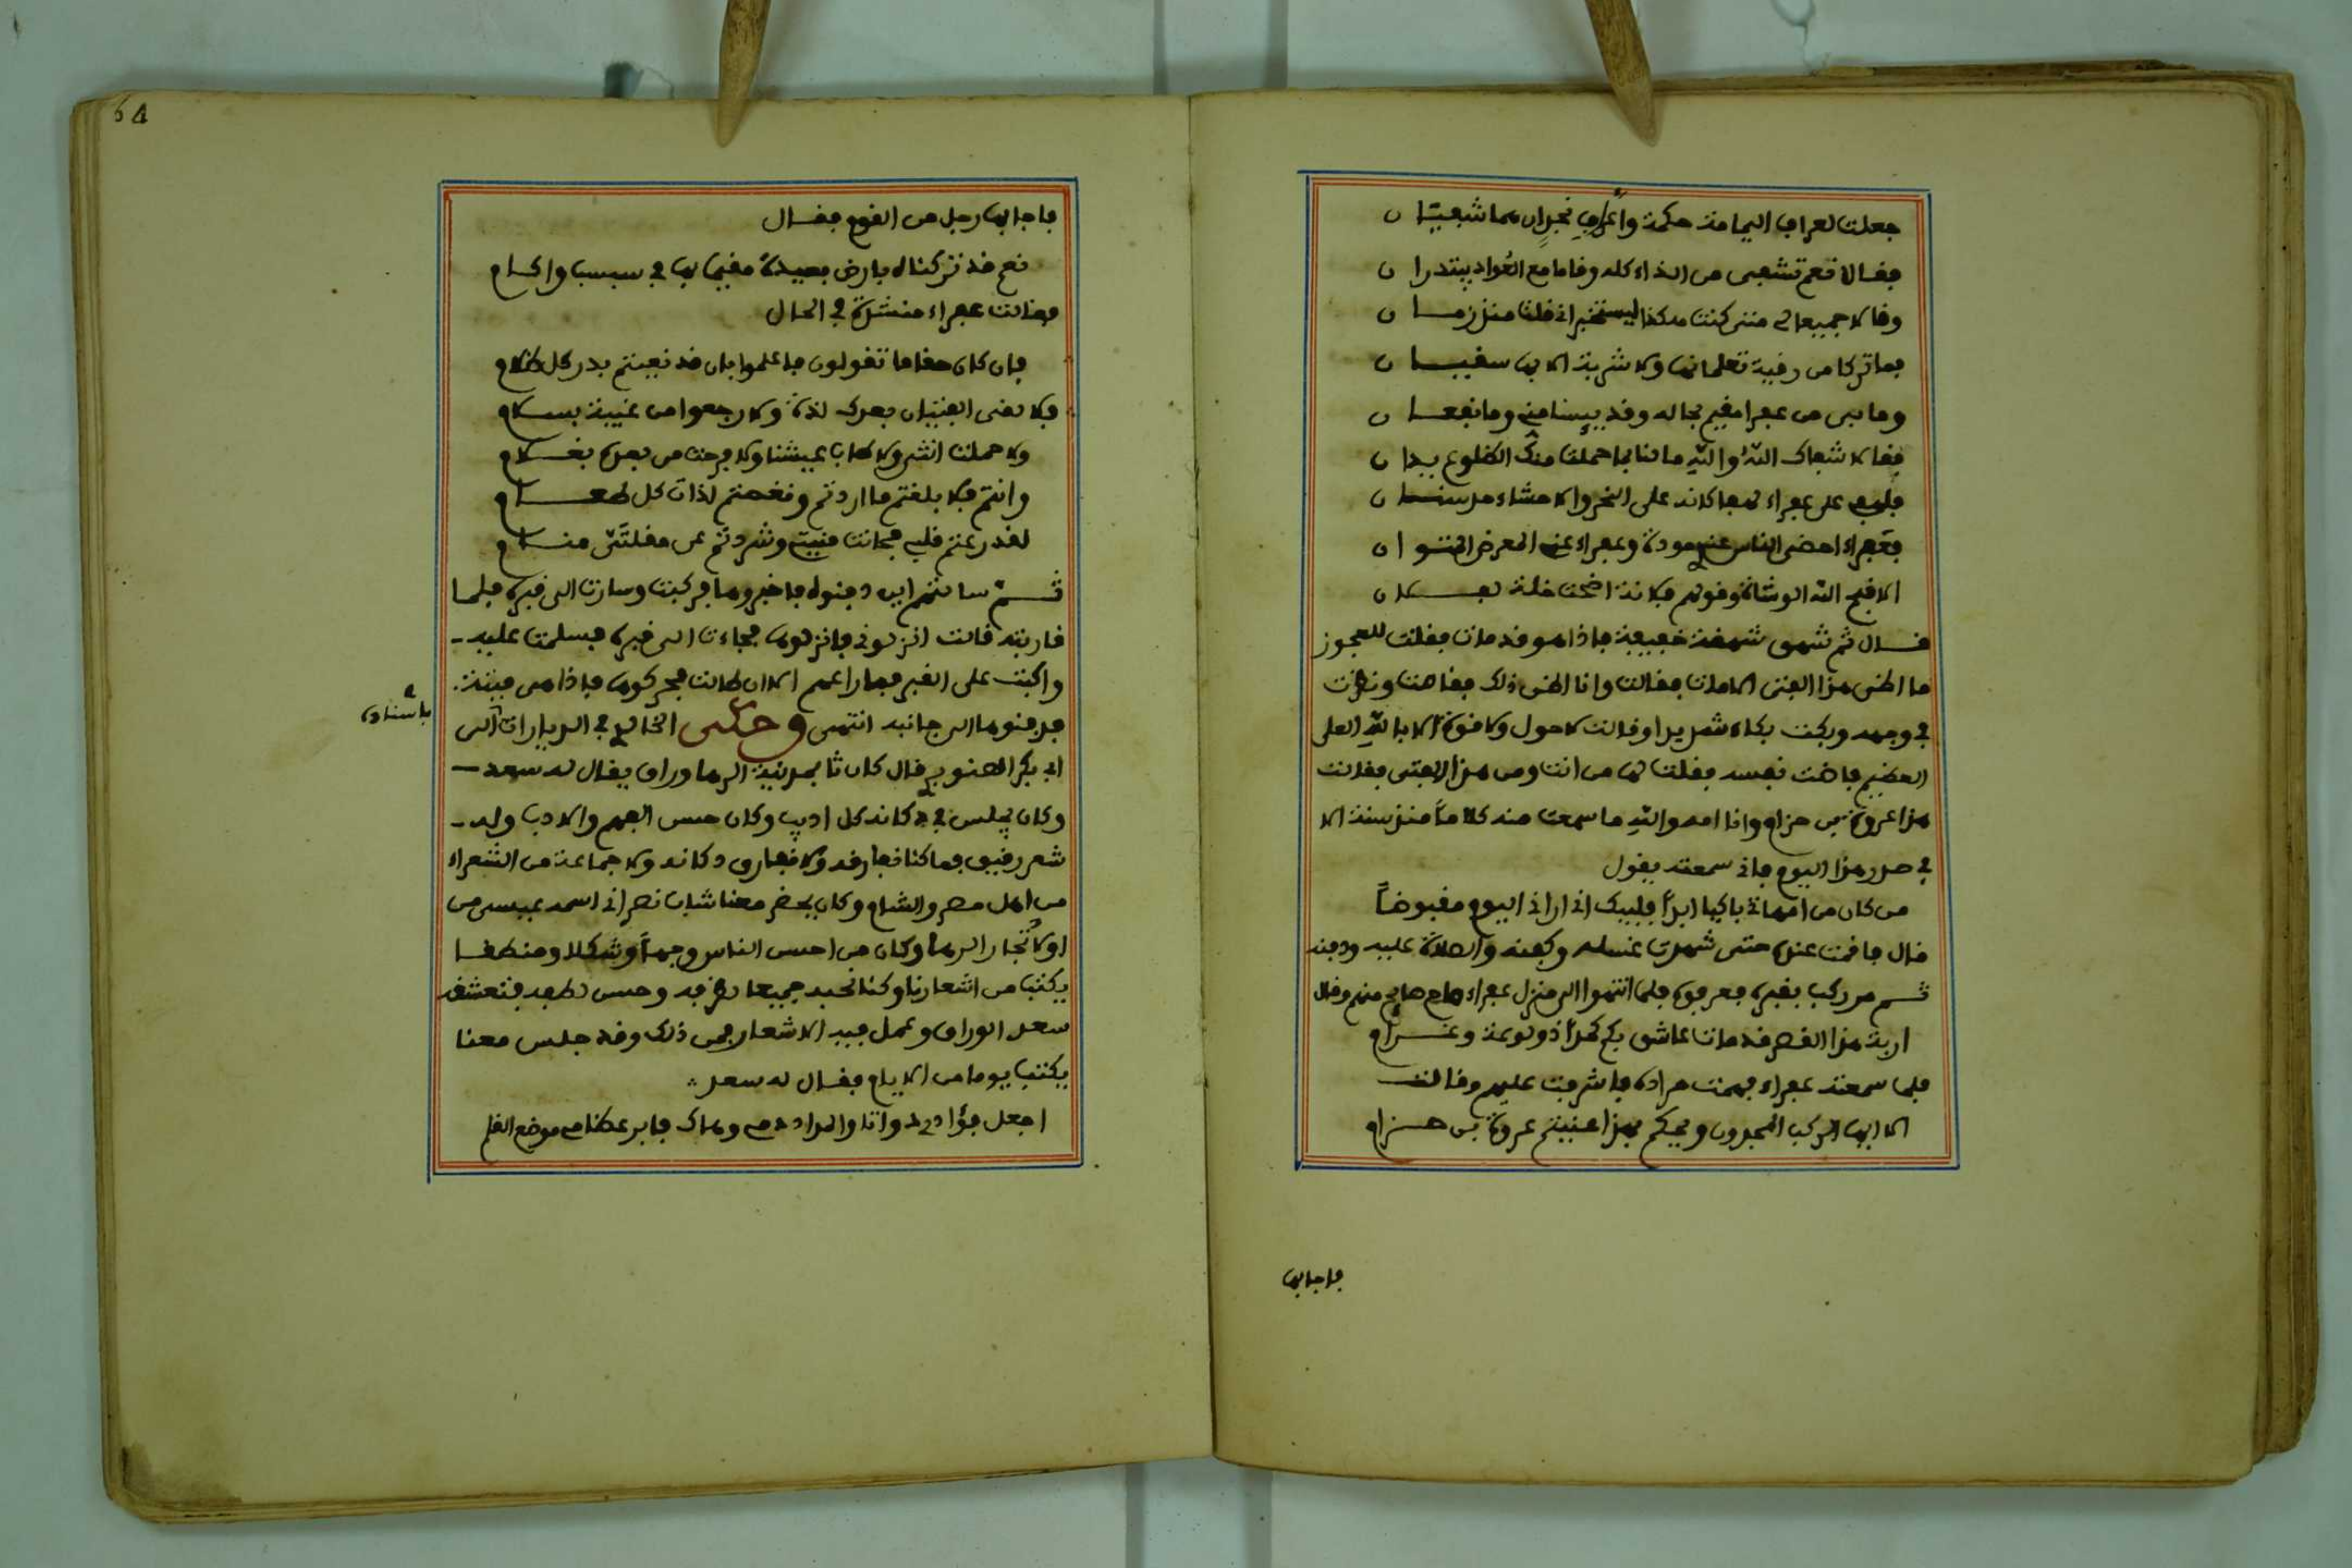 جعلت لعراف اليمامة حكمه وأعراف نجران هما شفيتان
فقالا نعم تشفى من الداء كله وقاما مع العواد يبتدران
وقالا جميعا لى متى كنت هكذا ليستخبرانى قلت منذ زمان
فما تركا من رقية تعلمانها ولا شربة الا بها سقيان
وما بى من عفرا مقيم بحاله وقد يبسنا منى وما نفعان
فقالا شفاك الله والله ما لنا بما حملت منك الضلوع يدان
على عفراء كانه على النحر والاحشاء حد سنان
فعفراء احضى الناس عندى مودة وعفراء عنى المعرض المتوان
الا قبح الله الوشاة وقولهم فلانة اضحت خلة لفلان
قال ثم شهق شهقة خفيفة فاذا هو قد مات فقلت للعجوز
ما اظن هذا الفتى الا مات فقالت وانا اظن ذلك فقامت ونظرت
فى وجهه وبكت بكاء شديدا وقالت لا حول ولا قوة الا بالله العلى
العظيم فاضت نفسه فقلت لها من انت ومن هذا الفتى فقالت
هذا عروة بن حزام وانا امه والله ما سمعت منه كلاماً منذ سنة الا
فى صدر هذا اليوم فانى سمعته يقول
من كان من امهاتى باكيا ابداً فليبك انى ارانى اليوم مقبوضاً
قال فاقمت عنده حتى شهدت غسله وكفنه والصلاة عليه ودفنه
ثم مر ركب بقبره فعرفوه فلما انتهوا الى منزل عفراء صاح صايح منهم وقال
اربة هذا القصر قد مات عاشق بكم كمداً ذو لوعة وغرام
فلما سمعته عفراء فهمت مراده فاشرفت عليهم وقالت
الا ايها الركب المجدون ويحكم بهذا عنيتم عروة بن حزام
فاجابها
64
فاجابها رجل من القوم فقال
نعم قد تركناه بارض بعيدة مقيما بها فى سبسب واكام
فقالت عفراء منشدة فى الحال
فان كان حقا ما تقولون فاعلموا بان قد نعيتم بدر كل ظلام
فلا لقى الفتيان بعدك لذة ولا رجعوا من غيبة بسلام
ولا حملت انثى ولا طاب عيشنا ولا فرحت من بعده بغلام
وانتم فلا بلغتم ما اردتم ونغصتم لذات كل طعام
لقد رعتم قلبى فحانت منيتى وشردتم عن مقلتى منام
ثم سالتهم اين دفنوه فاخبروها فركبت وسارت الى قبره فلما
قاربته قالت انزلونى فانزلوها فجاءت الى قبره فسلمت عليه
واكبت على القبر فما راعهم الا ان طالت فحركوها فاذا هى ميتة
فدفنوها الى جانبه انتهى وحكى الخالدى فى الديارات الى
باسناده
ابى بكر الصنوبرى قال كان ثا بمدينة الرها وراق يقال له سعد
وكان يجلس فى دكانه كل اديب وكان حسن الفهم والادب وله
شعر رقيق فما كنا نفارقه ولا نفارق دكانه ولا جماعة من الشعراء
من اهل مصر والشام وكان يحضر معنا شاب نصرانى اسمه عيسى من
اولاد تجار الرها وكان من احسن الناس وجهاً وشكلا ومنطقا
يكتب من اشعارنا وكنا نحبه جميعا لظرفه وحسن لطفه فتعشقه
سعد الوراق وعمل فيه الاشعار فمن ذلك وقد جلس معنا
يكتب يوما من الايام فقال له سعد
اجعل فؤادى دواتا والمداد دمى وهاك فابر عظامى موضع القلم